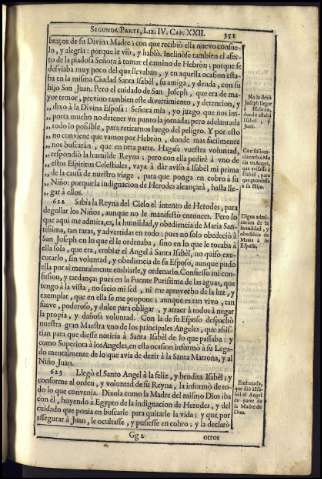 SEGUNDA PARTE, LIB. IV. CAP. XXII. 351
braços de su Divina Madre, con que recibiò ella nuevo consue-
lo, y alegria; porque le viò, y hablò. Inclinòse tambien el afec-
to de la piadosa Señora à tomar el camino de Hebron; porque se
desviaba muy poco del que llevaban, y en aquella ocasion esta-
ba en la misma Ciudad Santa Isabèl, su amiga, y deuda, con su
hijo San Juan. Pero el cuidado de San Joseph, que era de ma-
yor temor, previno tambien este divertimiento, y detencion, y
dixo à la Divina Esposa: Señora mia, yo juzgo, que nos im-
porta mucho no detener un punto la jornada; pero adelantarla
todo lo possible, para retirarnos luego del peligro. Y por esto
no conviene que vamos por Hebron, donde mas facilmente
nos buscaràn, que en otra parte. Hagase vuestra voluntad,
respondiò la humilde Reyna; pero con ella pedirè à uno de
estos Espiritus Celestiales, vaya à dàr aviso à Isabèl mi prima
de la causa de nuestro viage, para que ponga en cobro à su
Niño; porque la indignacion de Herodes alcançarà, hasta lle-
gar à ellos.
622 Sabia la Reyna del Cielo el intento de Herodes, para
degollar los Niños, aunque no le manifestò entonces. Pero lo
que aqui me admira, es, la humildad, y obediencia de Maria San-
tissima, tan raras, y advertidas en todo; pues no solo obedeciò à
San Joseph en lo que èl le ordenaba, sino en lo que le tocaba à
ella sola, que era, embiar el Angel à Santa Isabèl, no quiso exe-
cutarlo, sin voluntad, y obediencia de su Esposo, aunque pudo
ella por sì mentalmente embiarle, y ordenarlo. Confiesso mi con-
fusion, y tardança; pues en la Fuente Purissima de las aguas, que
tengo à la vista, no sacio mi sed, ni me aprovecho de la luz, y
exemplar, que en ella se me propone; aunque es tan vivo, tan
suave, poderoso, y dulce para obligar, y atraer à todos à negar
la propia, y dañosa voluntad. Con la de su Esposo despachò
nuestra gran Maestra uno de los principales Angeles, que assis-
tian para que diesse noticia à Santa Isabèl de lo que passaba; y
como Superiora à los Angeles, en esta ocasion informò à su Lega-
do mentalmente de lo que avia de dezir à la Santa Matrona, y al
Niño Juan.
623 Llegò el Santo Angel à la feliz, y bendita Isabèl; y
conforme al orden, y voluntad de su Reyna, la informò de to-
do lo que convenia. Dixola como la Madre del mismo Dios iba
con èl, huyendo à Egypto de la indignacion de Herodes, y del
cuidado que ponia en buscarlo para quitarle la vida; y que por
assegurar à Juan, le ocultasse, y pusiesse en cobro; y la declarò
Gg 2 otros